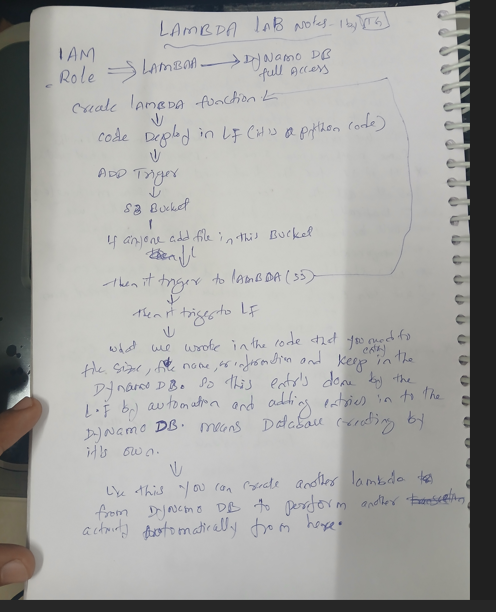 LAMBDA LAB Notes - 1b,
IAM
Role => LAMBDA -> DyNamo DB
full Access
create LAMBDA function
↓
code Deploy in LF (it is a python code)
↓
ADD Trigger
↓
S3 Bucket
if anyone add file in this Bucket
↓
then it triger to LAMBDA (S3)
↓
then it triger to LF
↓
what we wrote in the code that you need to
file size, file name, or information and keep entry in the
DyNamo DB. So this entry's done by the
L.F by automation and adding entries in to the
DyNamo DB. means Database creating by
it's own.
↓
Like this you can create another lambda
from DyNamo DB to perform another
activity automatically from here.